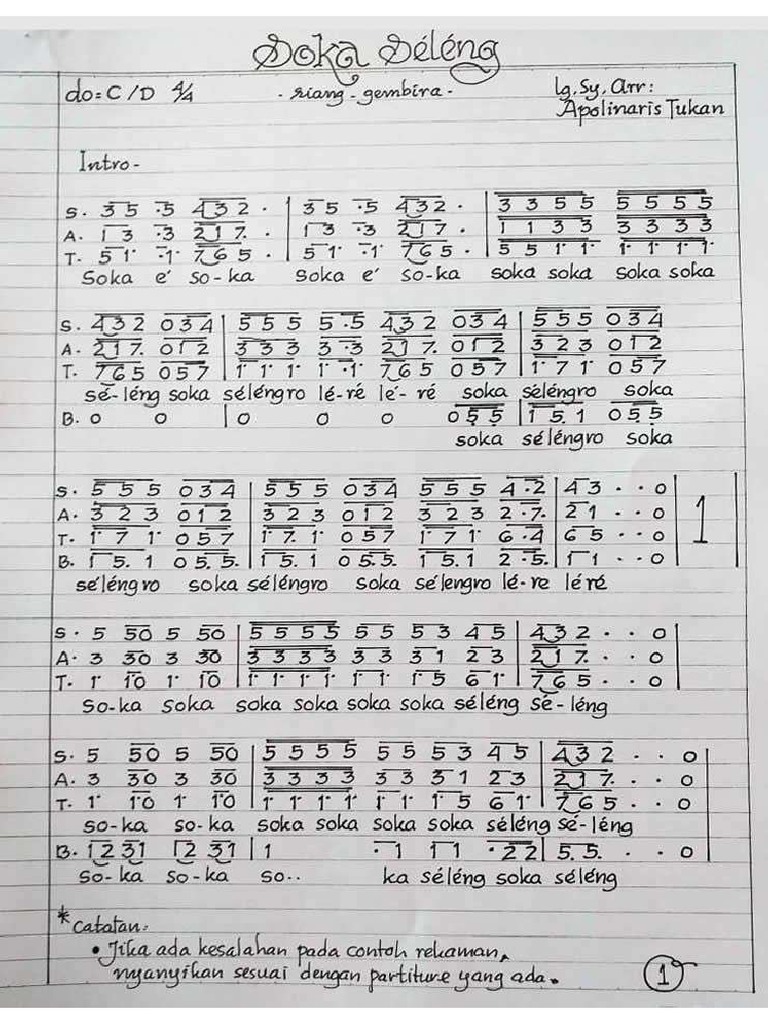 Soka Séléng
do = C/D 4/4 - riang - gembira - lg, Sy, Arr:
Apolinaris Tukan
Intro -
S. 3 5 .5 4 3 2 . | 3 5 .5 4 3 2 . | 3 3 5 5 5 5 5 5
A. 1 3 .3 2 1 7. . | 1 3 .3 2 1 7. . | 1 1 3 3 3 3 3 3
T. 5 1· .1· 7 6 5 . | 5 1· .1· 7 6 5 . | 5 5 1· 1· 1· 1· 1· 1·
Soka e' so-ka Soka e' so-ka soka soka soka soka
S. 4 3 2 0 3 4 | 5 5 5 5 .5 4 3 2 0 3 4 | 5 5 5 0 3 4
A. 2 1 7. 0 1 2 | 3 3 3 3 .3 2 1 7. 0 1 2 | 3 2 3 0 1 2
T. 7 6 5 0 5 7 | 1· 1· 1· 1· .1· 7 6 5 0 5 7 | 1· 7 1· 0 5 7
sé-léng soka séléngro lé-ré lé-ré soka séléngro soka
B. 0 0 | 0 0 0 0 5. 5. | 1 5. 1 0 5. 5.
soka séléngro soka
S. 5 5 5 0 3 4 | 5 5 5 0 3 4 5 5 5 4 .2 | 4 3 . . 0 | 1
A. 3 2 3 0 1 2 | 3 2 3 0 1 2 3 2 3 2 .7. | 2 1 . . 0
T. 1· 7 1· 0 5 7 | 1· 7 1· 0 5 7 1· 7 1· 6 .4 | 6 5 . . 0
B. 1 5. 1 0 5. 5. | 1 5. 1 0 5. 5. 1 5. 1 2 .5. | 1 1 . . 0
séléngro soka séléngro soka sélengro lé-re léré
S. 5 50 5 50 | 5 5 5 5 5 5 5 3 4 5 | 4 3 2 . . 0
A. 3 30 3 30 | 3 3 3 3 3 3 3 1 2 3 | 2 1 7. . . 0
T. 1· 1·0 1· 1·0 | 1· 1· 1· 1· 1· 1· 1· 5 6 1· | 7 6 5 . . 0
So-ka soka soka soka soka soka séléng sé-léng
S. 5 50 5 50 | 5 5 5 5 5 5 5 3 4 5 | 4 3 2 . . 0
A. 3 30 3 30 | 3 3 3 3 3 3 3 1 2 3 | 2 1 7. . . 0
T. 1· 1·0 1· 1·0 | 1· 1· 1· 1· 1· 1· 1· 5 6 1· | 7 6 5 . . 0
so-ka so-ka soka soka soka soka séléng sé-léng
B. 1 2 3 1 1 2 3 1 | 1 .1 1 1 .2 2 | 5. 5. . . 0
so-ka so-ka so.. ka séléng soka séléng
* Catatan:
• Jika ada kesalahan pada contoh rekaman,
nyanyikan sesuai dengan partiture yang ada.
1